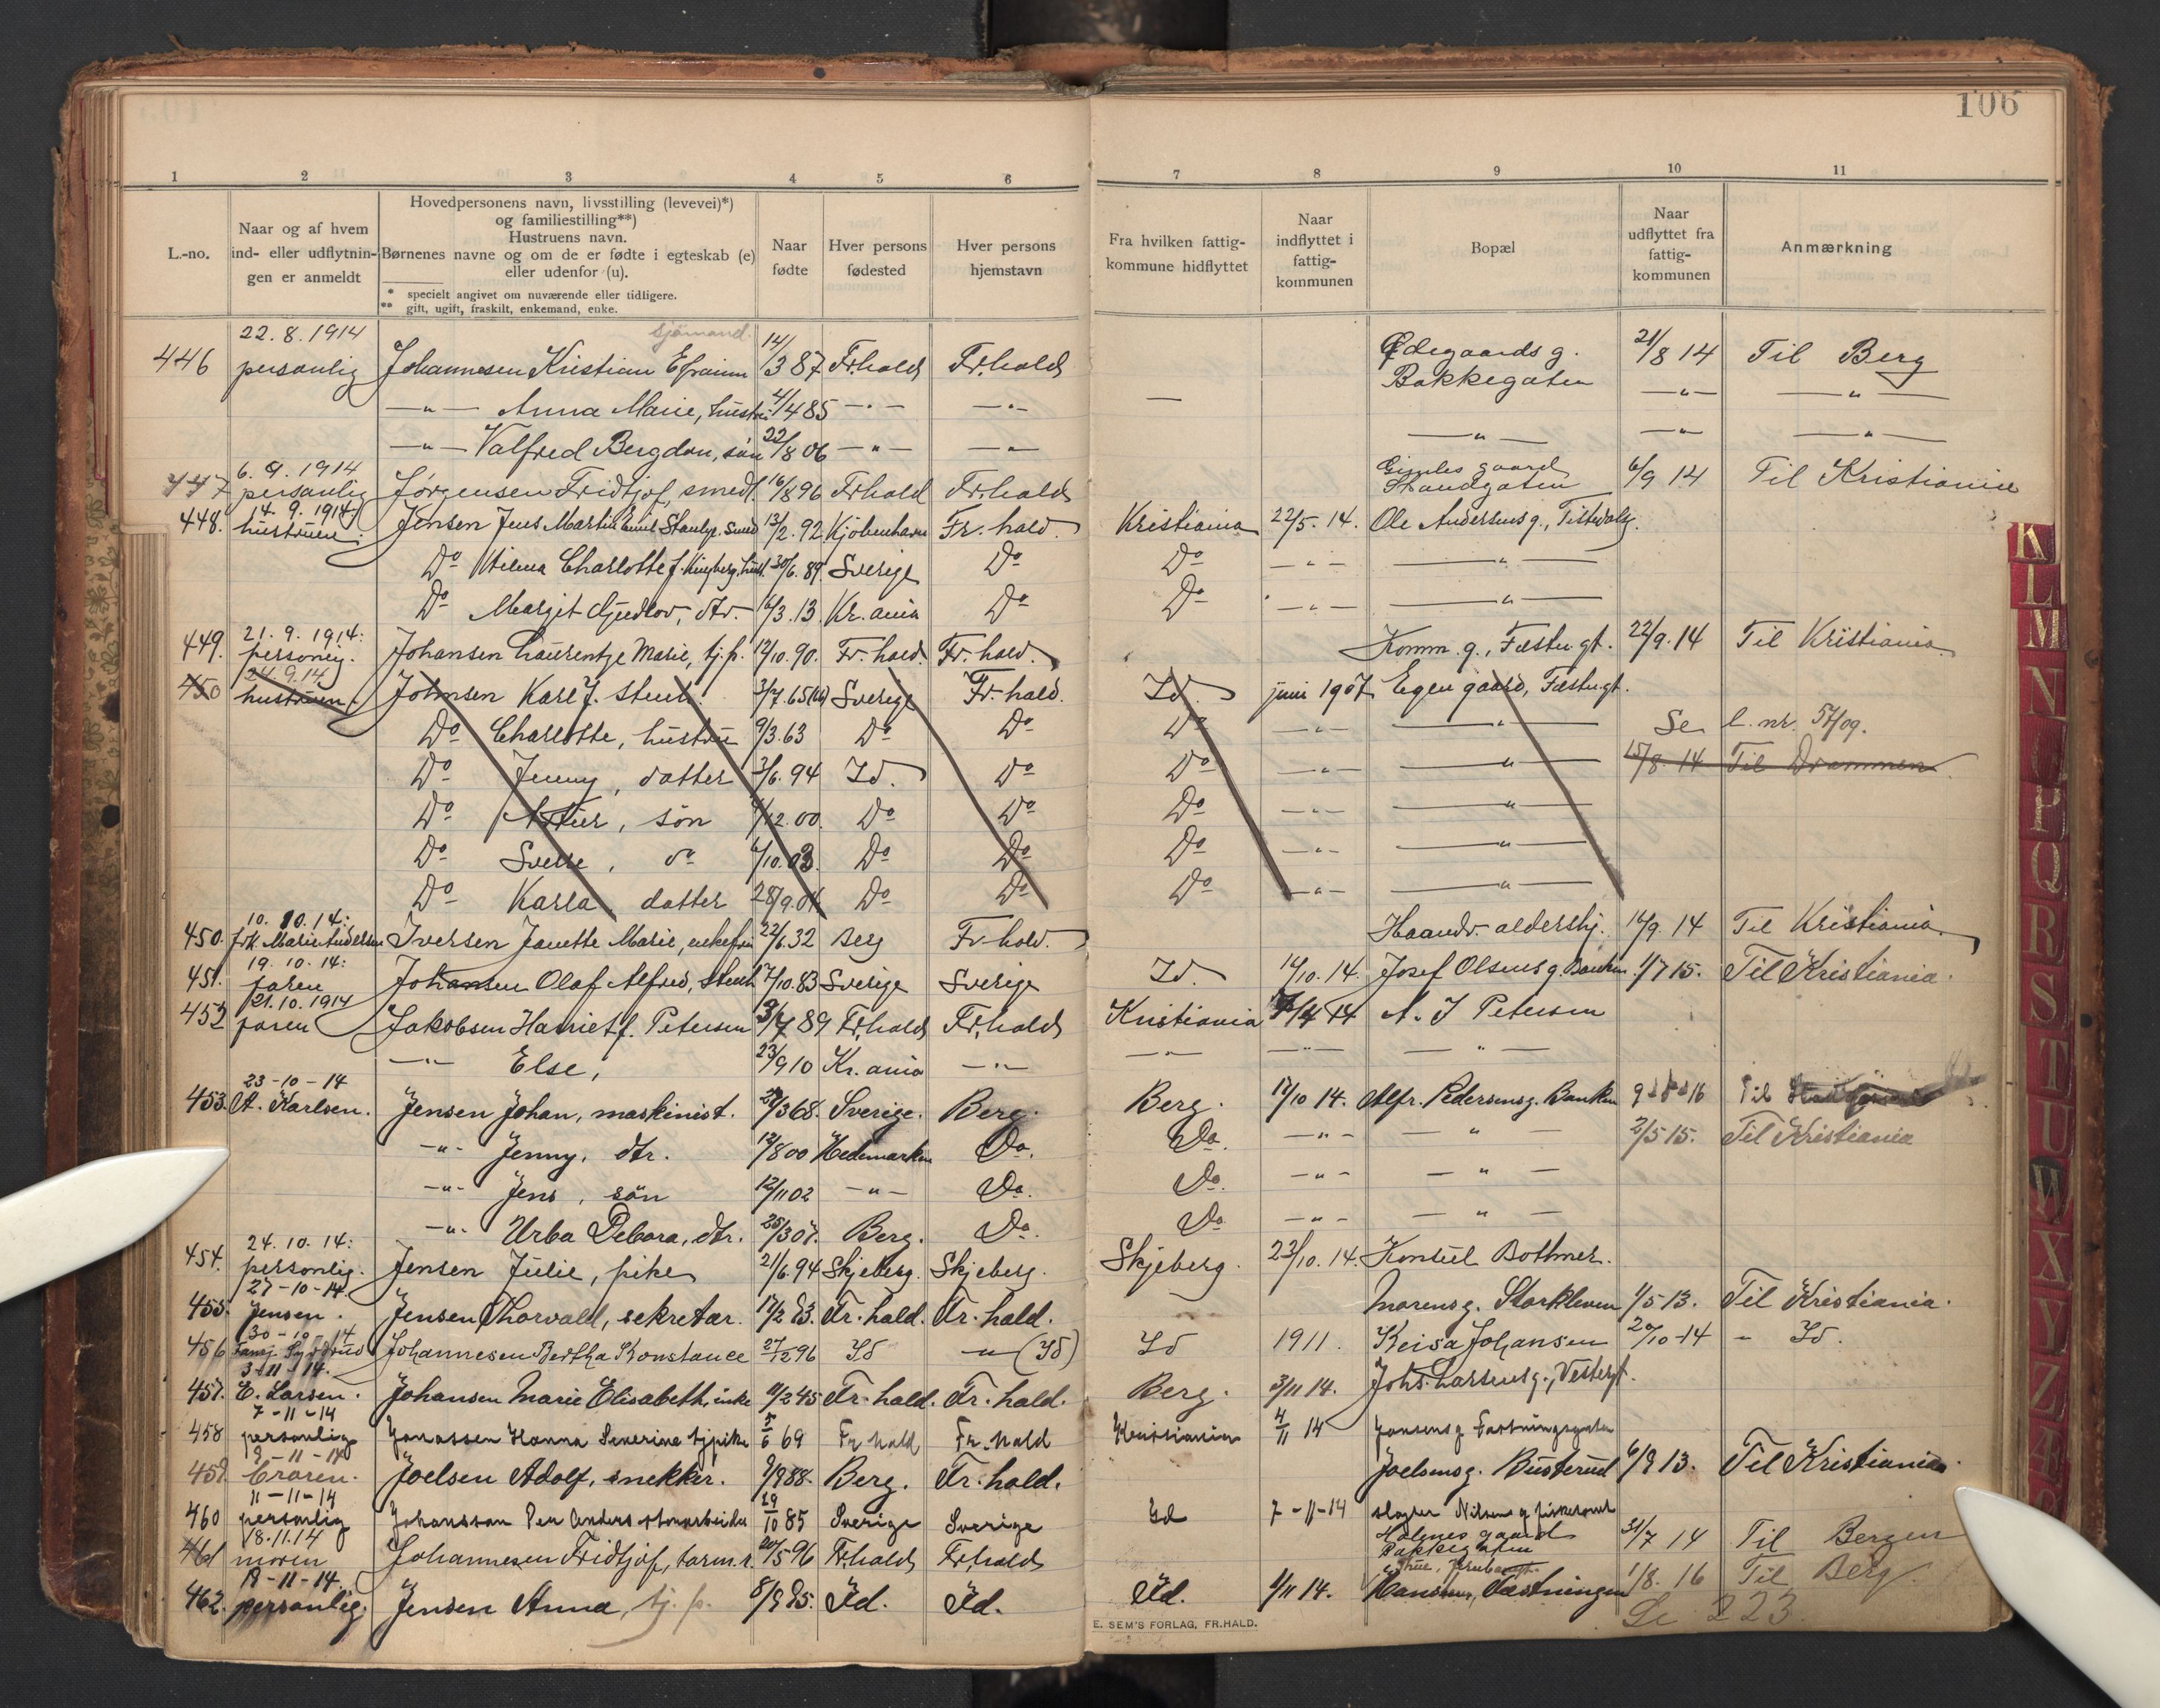 106
1 2 3 4 5 6 7 8 9 10 11
L.-no.
Naar og af hvem ind- eller udflytningen er anmeldt
Hovedpersonens navn, livsstilling (levevei)*) og familiestilling**)
Hustruens navn.
Børnenes navne og om de er fødte i egteskab (e) eller udenfor (u).
* specielt angivet om nuværende eller tidligere.
** gift, ugift, fraskilt, enkemand, enke.
Naar fødte
Hver persons fødested
Hver persons hjemstavn
Fra hvilken fattigkommune hidflyttet
Naar indflyttet i fattigkommunen
Bopæl
Naar udflyttet fra fattigkommunen
Anmærkning
446 22.8.1914 personlig Johannesen Kristian Efraim sjømand. 14/3 87 Fr.hald Fr.hald Ødegaards g. Bakkegaten 21/8 14 Til Berg
—"— Anna Marie, hustru 4/4 85 —"— —"— — —"— —"—
—"— Valfred Bergdon, søn 22/8 06 —"— —"— —"— —"— —"—
447 6.9.1914 personlig Jørgensen Fridtjof, smedl. 16/8 96 Frhald Fr.hald Gimles gaard Strandgaten 6/9 14 Til Kristiania
448. 14.9.1914 hustruen. Jensen Jens Martin Emil 13/2. 92 Kjøbenhavn Fr. hald. Kristiania 22/5. 14. Ole Andersens g., Tistedalsg.
Do Charlotte f. hust. 30/6. 89 Sverige Do Do —"— —"—
Do Margit Gjudlov, dtr. 6/3. 13. Kr.ania Do Do —"— —"—
449. 21.9.1914: personlig. Johansen Laurentze Marie, tj.p. 12/10. 90. Fr. hald. Fr. hald. Komm. g., Fæstn.gt. 22/9. 14 Til Kristiania.
450 24.9.14 hustruen. Johnsen Karl J. stenh. 3/7. 65 Sverige Fr. hald. Id juni 1907 Egen gaard, Fæstn.gt.
Do Charlotte, hustru 9/3. 63 Do Do Do —"— —"— Se l. nr. 57/09.
Do Jenny, datter 3/6. 94 Id. Do Do —"— —"— 15/8. 14 Til Drammen.
Do Artur, søn /12. 00. Do Do Do —"— —"—
Do Sverre, do 6/10. 03. Do Do Do —"— —"—
Do Karla, datter 28/9. 04 Do Do Do —"— —"—
450. 10.10.14: frk. Marie Andersen Iversen Janette Marie, enkefru 22/6. 32 Berg Fr. hald. Haandv. aldershj. 16/9. 14 Til Kristiania.
451. 19.10.14: faren Johansen Olaf Alfred, stenh 17/10. 83 Sverige Sverige Id. 14/10. 14. Josef Olsens g. Banken 1/7 15. Til Kristiania.
452 21.10.1914 faren Jakobsen Harriet f. Petersen 3/7 89 Fr.hald Fr.hald Kristiania 14 A. J Petersen
—"— Else, 23/9 10 Kr.ania —"— —"— —"— —"—
453. 23-10-14 A. Karlsen. Jensen Johan, maskinist. 3 68. Sverige. Berg. Berg. 17/10 14. Alfr. Pedersens g. Banken 16 Til
—"— Jenny, dtr. 12/8 00 Hedemarken Do. Do. —"— —"— 2/5 15. Til Kristiania
—"— Jens, søn 12/11 02 —"— Do. Do. —"— —"—
—"— Urba Debora, dtr. 25/3 07. Berg. Do. Do —"— —"—
454. 24.10.14: personlig. Jensen Julie, pike 21/6. 94 Skjeberg. Skjeberg. Skjeberg. 23/10. 14. Konsul Bothner.
455. 27-10-14 Jensen. Jensen Thorvald, sekretær. 17/2 83. Fr. hald. Fr. hald. Morens g. Storkleven 1/5 13. Til Kristiania.
456 30-10-14 Johannesen Bertha Konstance 27/2 96 Id —"— (Id) Id 1911. Keisa Johansen 20/10-14 - Id.
457. 3-11-14. E. Larsen. Johansen Marie Elisabeth, enke 11/2 45 Fr. hald. Fr. hald. Berg. 3/11 14. Johs. Larsens g., Vestergt.
458 7-11-14 personlig Jonassen Hanna Severine tjpike 5/6 69 Fr hald Fr. hald Kristiania 4/11 14 Jansens g Fæstningsgaten
459. 9-11-14 broren. Joelsen Adolf, snekker. 9/9 88. Berg. Fr. hald. Joelsens g. Busterud 6/9 13. Til Kristiania.
460 11-11-14 personlig Johansson Per Anders stenarbeider 29/10 85 Sverige Sverige Id 7-11-14 slagter Nilsens g
461 18.11.14 moren Johannesen Fridtjof, 20/5 96 Frhald Fr.hald Holmes gaard Bakkegaten 31/7 14 Til Bergen
462. 18-11-14. personlig. Jensen Anna, tj.p. 8/9 85. Id. Id. Id. 1/11 14. Fæstningen 1/8. 16 Til Berg.
Se 223
E. SEM'S FORLAG, FR.HALD.
K
L
M
N
P
Q
R
S
T
U
W
X
Y
Z